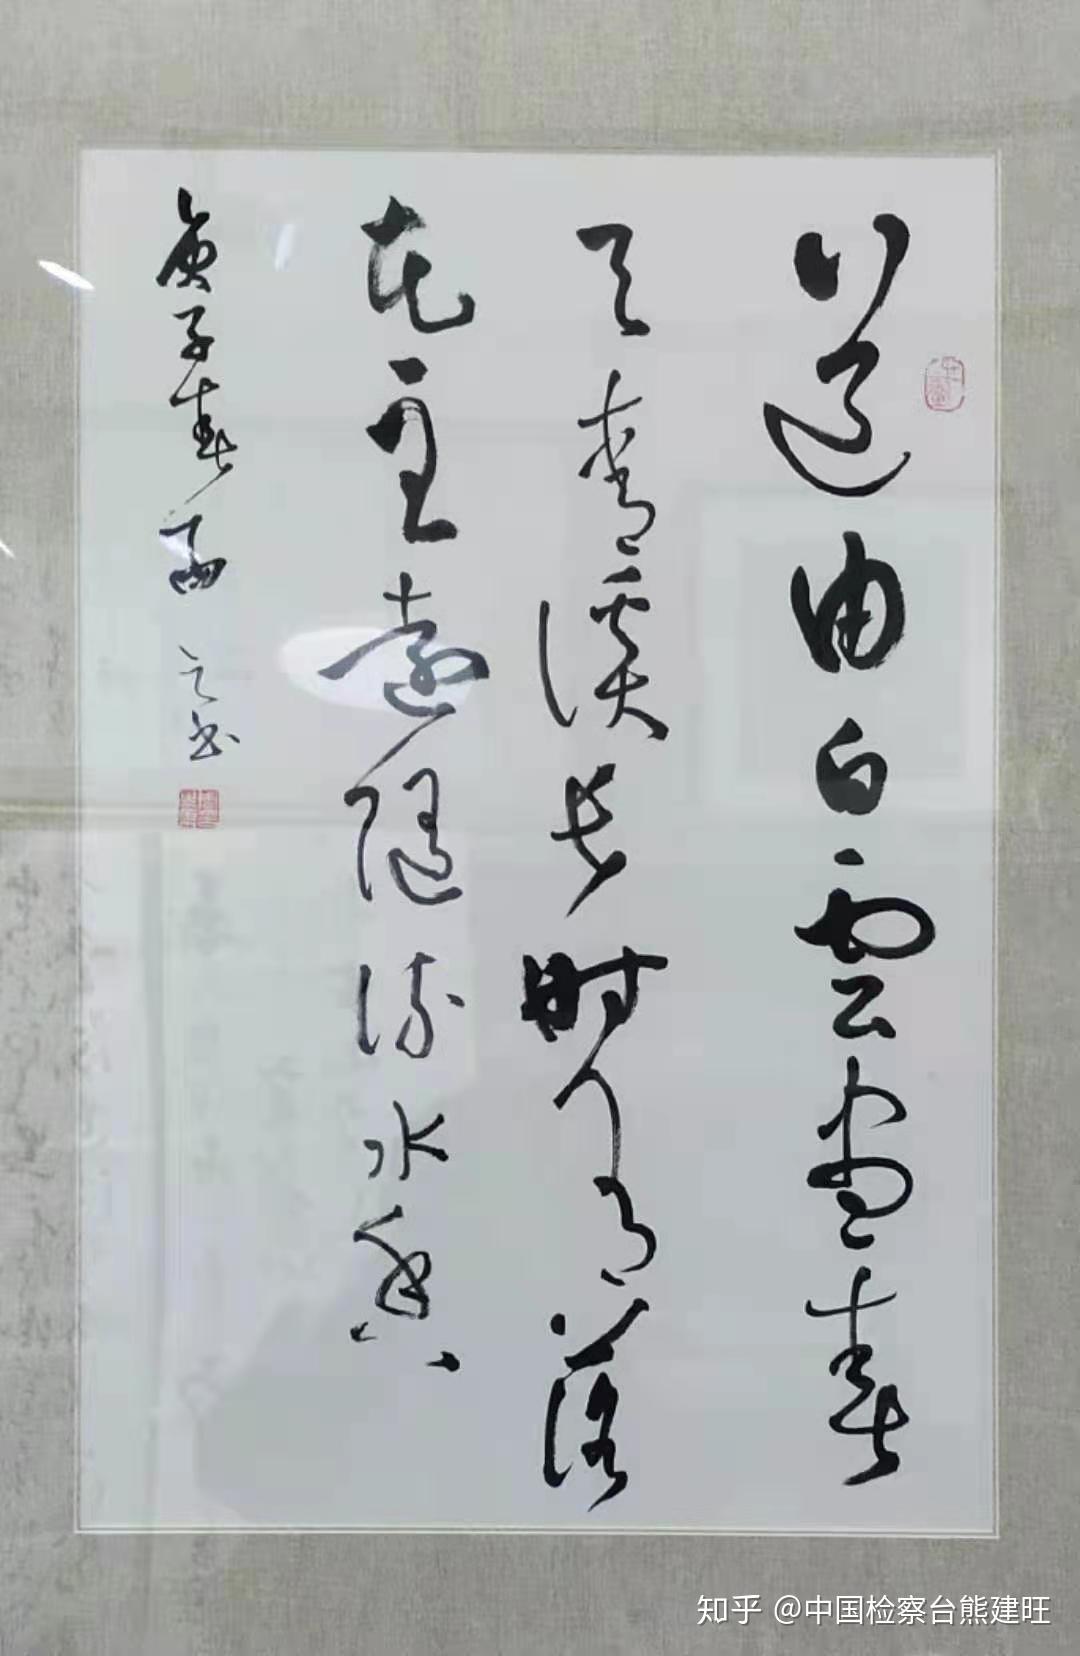 道由白雲盡春
与青溪長时有落
花至遠隨流水香
庚子春 之书
知乎 @中国检察台熊建旺